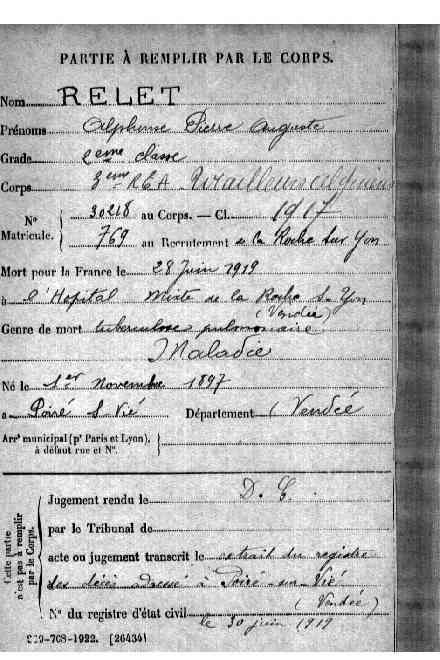 PARTIE À REMPLIR PAR LE CORPS.
Nom RELET
Prénoms Alphonse Pierre Auguste
Grade 2eme classe
Corps 3eme R T A Tirailleurs algériens
N° Matricule. 30218 au Corps. — Cl. 1917
769 au Recrutement de la Roche sur Yon
Mort pour la France le 28 Juin 1919
à l'Hopital Mixte de la Roche s- Yon
(Vendée)
Genre de mort tuberculose pulmonaire
Maladie
Né le 1er Novembre 1897
a Poiré s Vié Département (Vendée
Arrt municipal (pr Paris et Lyon),
à défaut rue et N°.
Cette partie n'est pas à remplir par le Corps.
Jugement rendu le D. C.
par le Tribunal de
acte ou jugement transcrit le extrait du registre
des décès adressé à Poiré-sur-Vié
(Vendée)
N° du registre d'état civil le 30 juin 1919
-708-1922. [26434]